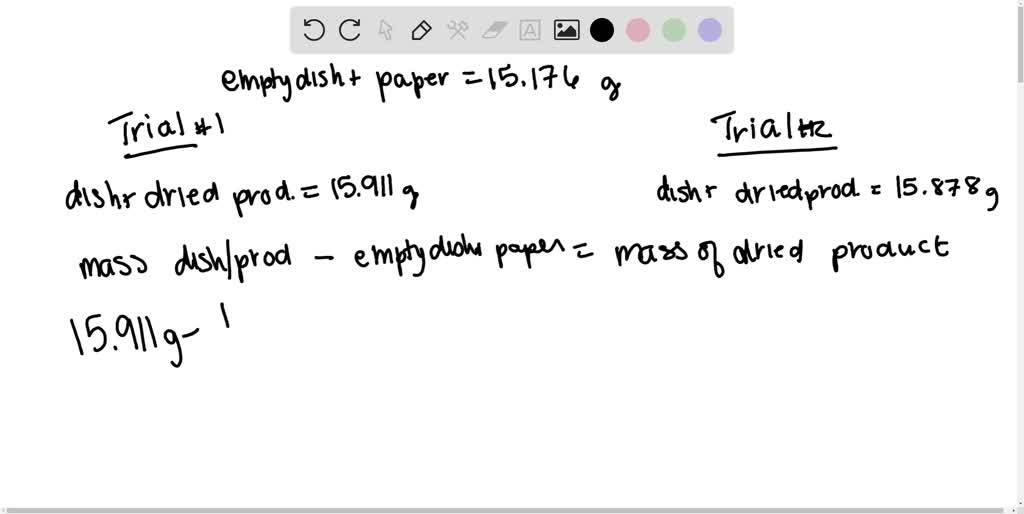 empty dish + paper = 15.176 g
Trial #1
Trial #2
dish + dried prod. = 15.911 g
dish + dried prod. = 15.878 g
mass dish/prod - empty dish + paper = mass of dried product
15.911 g - 1